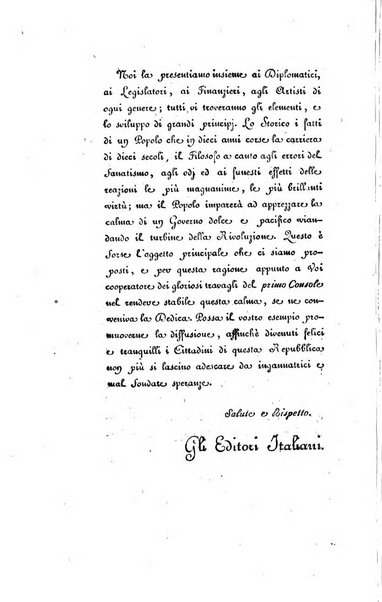 Noi la presentiamo insieme ai Diplomatici,
ai Legislatori, ai Finanzieri, agli Artisti di
ogni genere; tutti vi troveranno gli elementi, e
lo sviluppo di grandi principj. Lo Storico i fatti
di un Popolo che in dieci anni corse la carriera
di dieci secoli, il Filosofo a canto agli errori del
Fanatismo, agli odj ed ai funesti effetti delle
reazioni le più magnanime, le più brillanti
virtù; ma il Popolo imparerà ad apprezzare la
calma di un Governo dolce e pacifico vian-
dando il turbine della Rivoluzione. Questo è
forse l'oggetto principale che ci siamo pro-
posti, e per questa ragione appunto a Voi
cooperatore dei gloriosi travagli del primo Console
nel rendere stabile questa calma, se ne con-
veniva la Dedica. Possa il vostro esempio pro-
muoverne la diffusione, affinchè divenuti felici
e tranquilli i Cittadini di questa Repubblica
non più si lascino adescare da ingannatrici e
mal fondate speranze.
Salute e Rispetto.
Gli Editori Italiani.